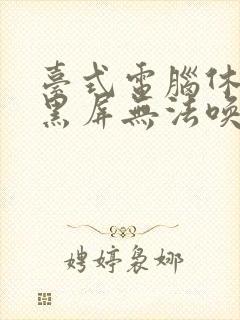 臺式電腦休
黑屏無法喚
娉婷裊娜